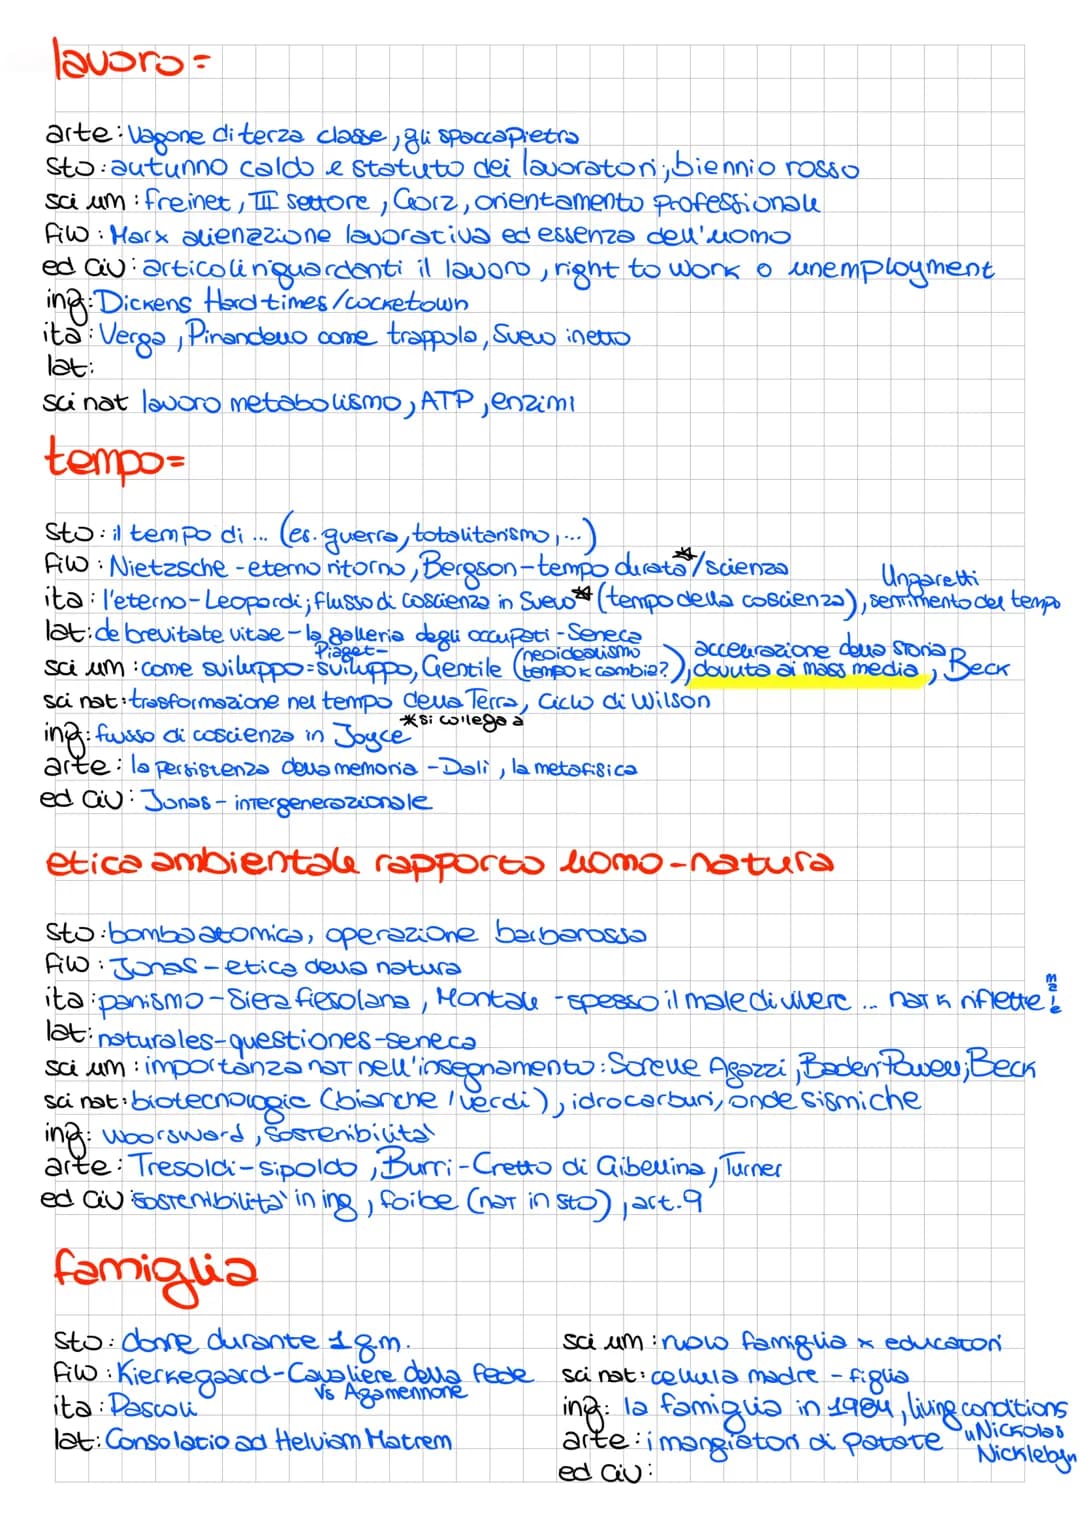 lavoro=
arte: Vagone di terza classe, gli spaccapietra
sto: autunno caldo e statuto dei lavoratori; biennio rosso
sci um: freinet, III settore, Gorz, orientamento professionale
filo: Marx alienazione lavorativa ed essenza dell'uomo
ed civ: articoli riguardanti il lavoro, right to work o unemployment
ing: Dickens Hard times/cocketown
ita: Verga, Pirandello come trappola, Svevo inetto
lat:
sci nat lavoro metabolismo, ATP, enzimi
tempo=
sto: il tempo di ... (es. guerra, totalitarismo, ...)
filo: Nietzsche - eterno ritorno, Bergson - tempo durata*/scienza
ita: l'eterno - Leopardi; flusso di coscienza in Svevo* (tempo della coscienza), Ungaretti sentimento del tempo
lat: de brevitate vitae - la galleria degli occupati - Seneca
sci um: come sviluppo = Piaget - sviluppo, Gentile (neoidealismo tempo x cambia?), accelerazione della storia dovuta ai mass media, Beck
sci nat: trasformazione nel tempo della Terra, Ciclo di Wilson
*si collega a
ing: flusso di coscienza in Joyce
arte: la persistenza della memoria - Dalì, la metafisica
ed civ: Jonas - intergenerazionale
etica ambientale rapporto uomo-natura
sto: bomba atomica, operazione barbarossa
filo: Jonas - etica della natura
ita: panismo - Siera fiesolana, Montale - spesso il male di vivere ... nat riflette male
lat: naturales - questiones - seneca
sci um: importanza nat nell'insegnamento: Sorelle Agazzi, Baden Powell; Beck
sci nat: biotecnologie (bianche / verdi), idrocarburi, onde sismiche
ing: woorsword, sostenibilità
arte: Tresoldi - sipoldo, Burri - Cretto di Gibellina, Turner
ed civ sostenibilità in ing, foibe (nat in sto), art. 9
famiglia
sto: donne durante 1 g.m.
filo: Kierkegaard - Cavaliere della fede
vs Agamennone
ita: Pascoli
lat: Consolatio ad Helviam Matrem
sci um: ruolo famiglia x educatori
sci nat: cellula madre - figlia
ing: la famiglia in 1984, living conditions
"Nickolas
Nickleby"
arte: i mangiatori di patate
ed civ: